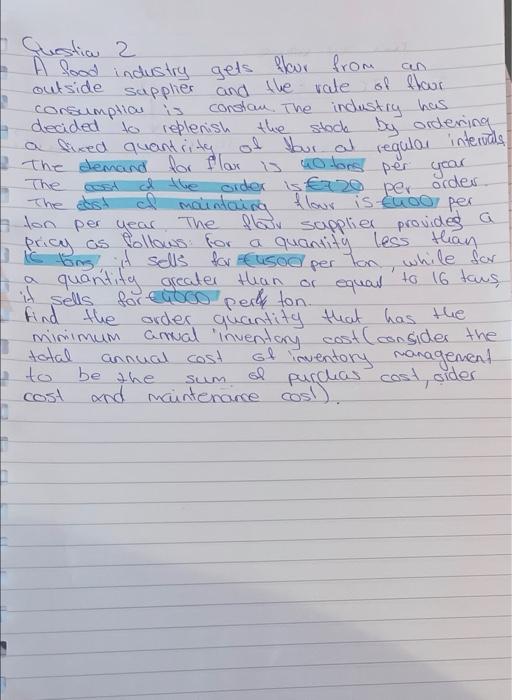 Question 2
A food industry gets flour from an
outside supplier and the rate of flour
consumption is constau. The industry has
decided to replenish the stock by ordering
a fixed quantity of flour at regular intervals
The demand for flar is 40 tons per year
The cost of the order is €720 per order.
The cost of maintaing flour is €400 per
ton per year. The flour supplier provided a
pricy as follows: for a quantity less than
16 tons it sells for €4500 per ton, while for
a quantity greater than or equal to 16 tons
it sells for €4000 per ton.
Find the order quantity that has the
minimum annual inventory cost (consider the
total annual cost of inventory management
to be the sum of purchas cost, order
cost and maintenance cost).